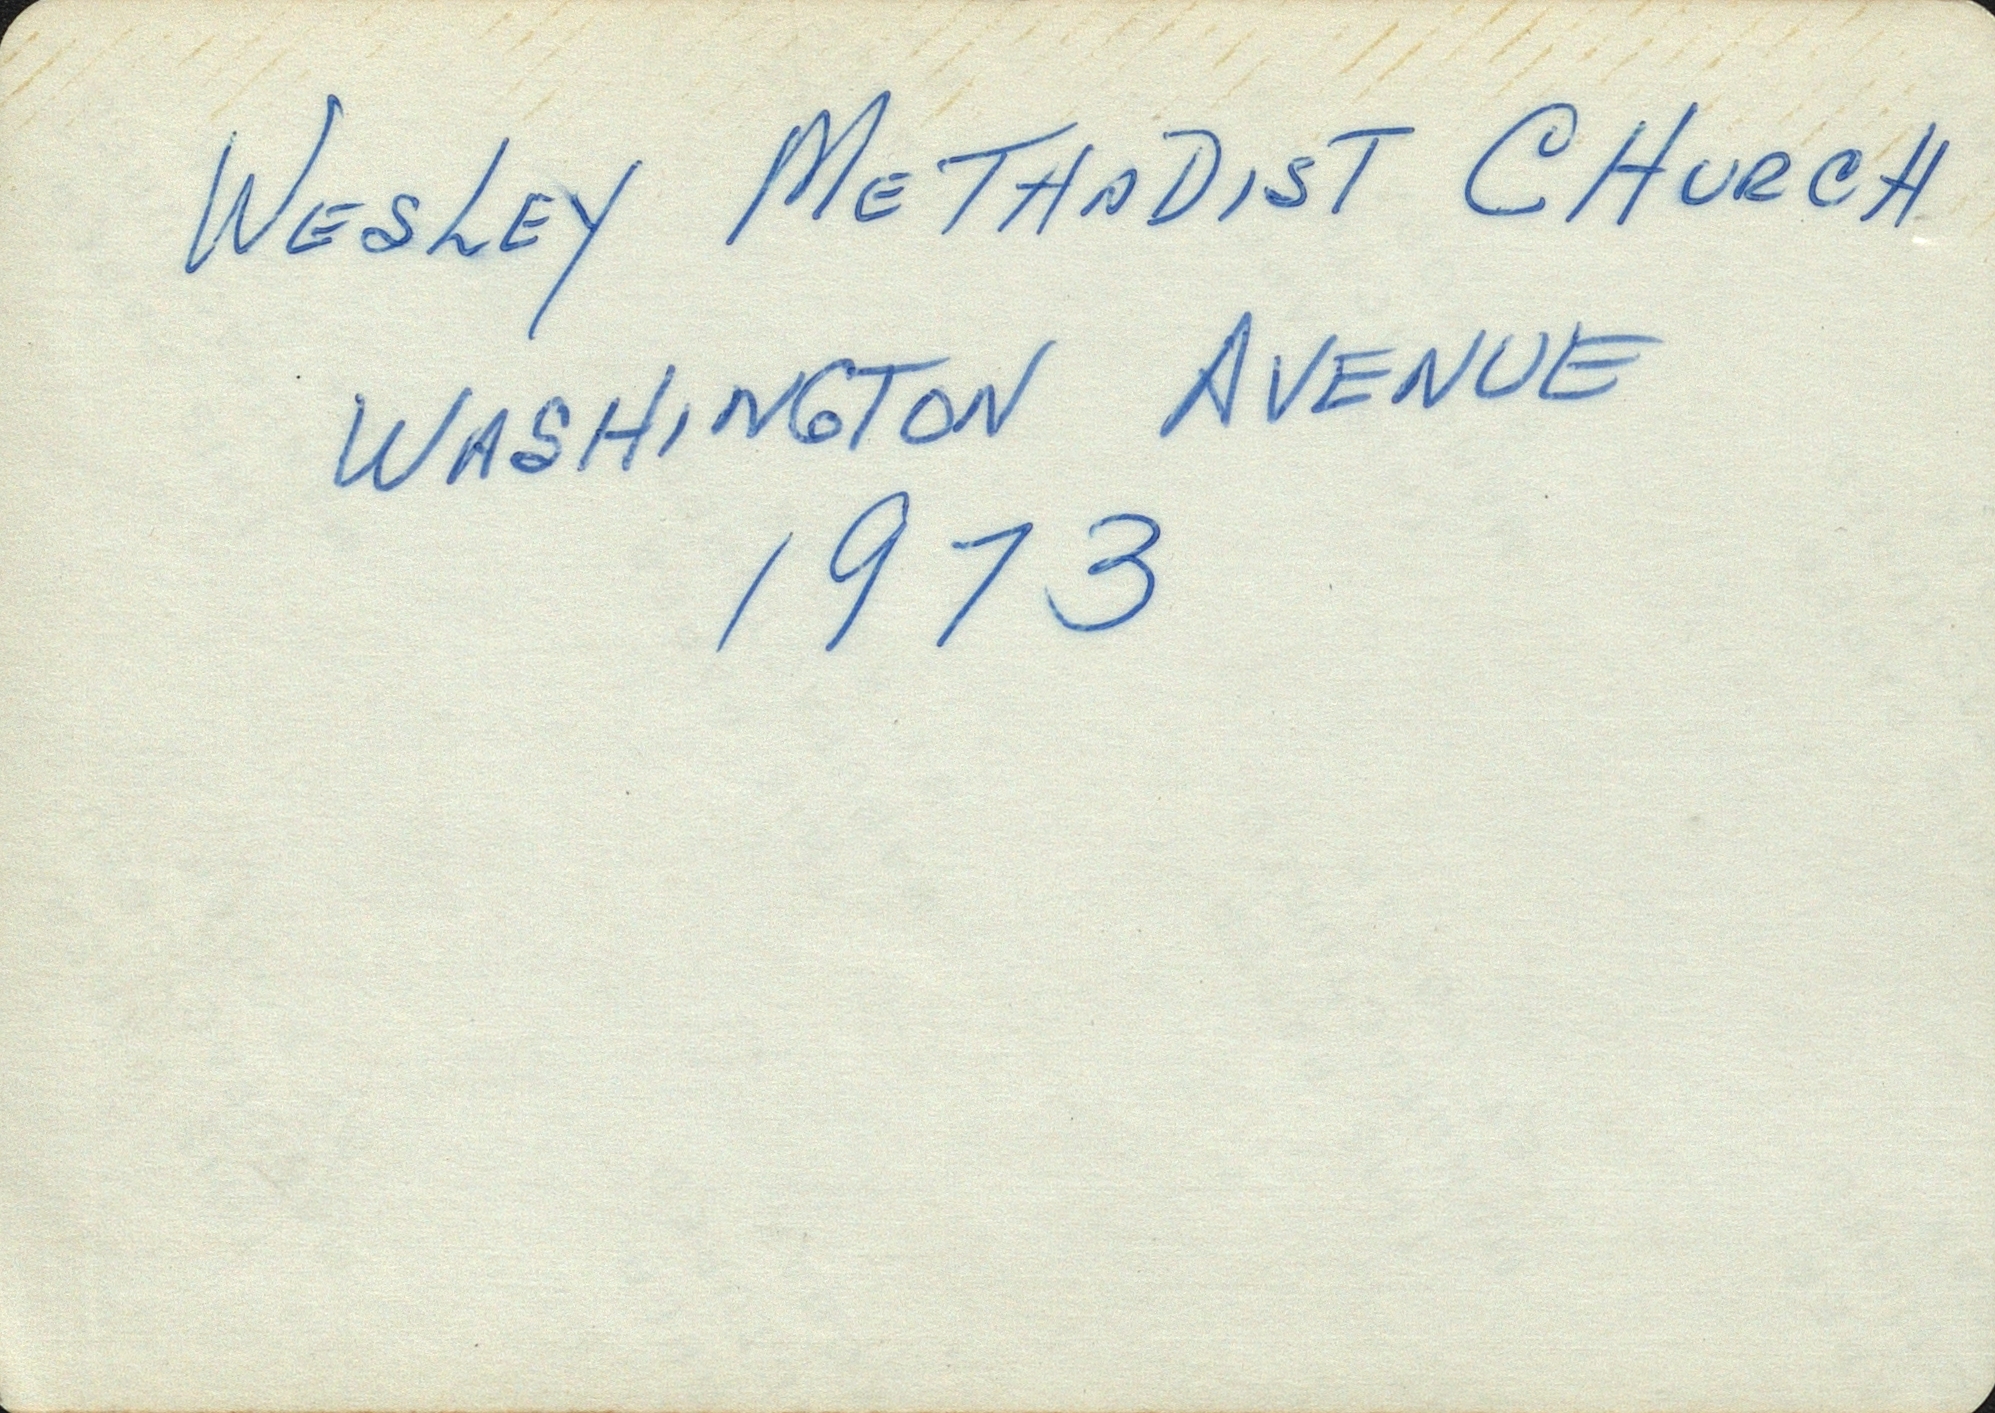 WESLEY METHODIST CHURCH
WASHINGTON AVENUE
1973